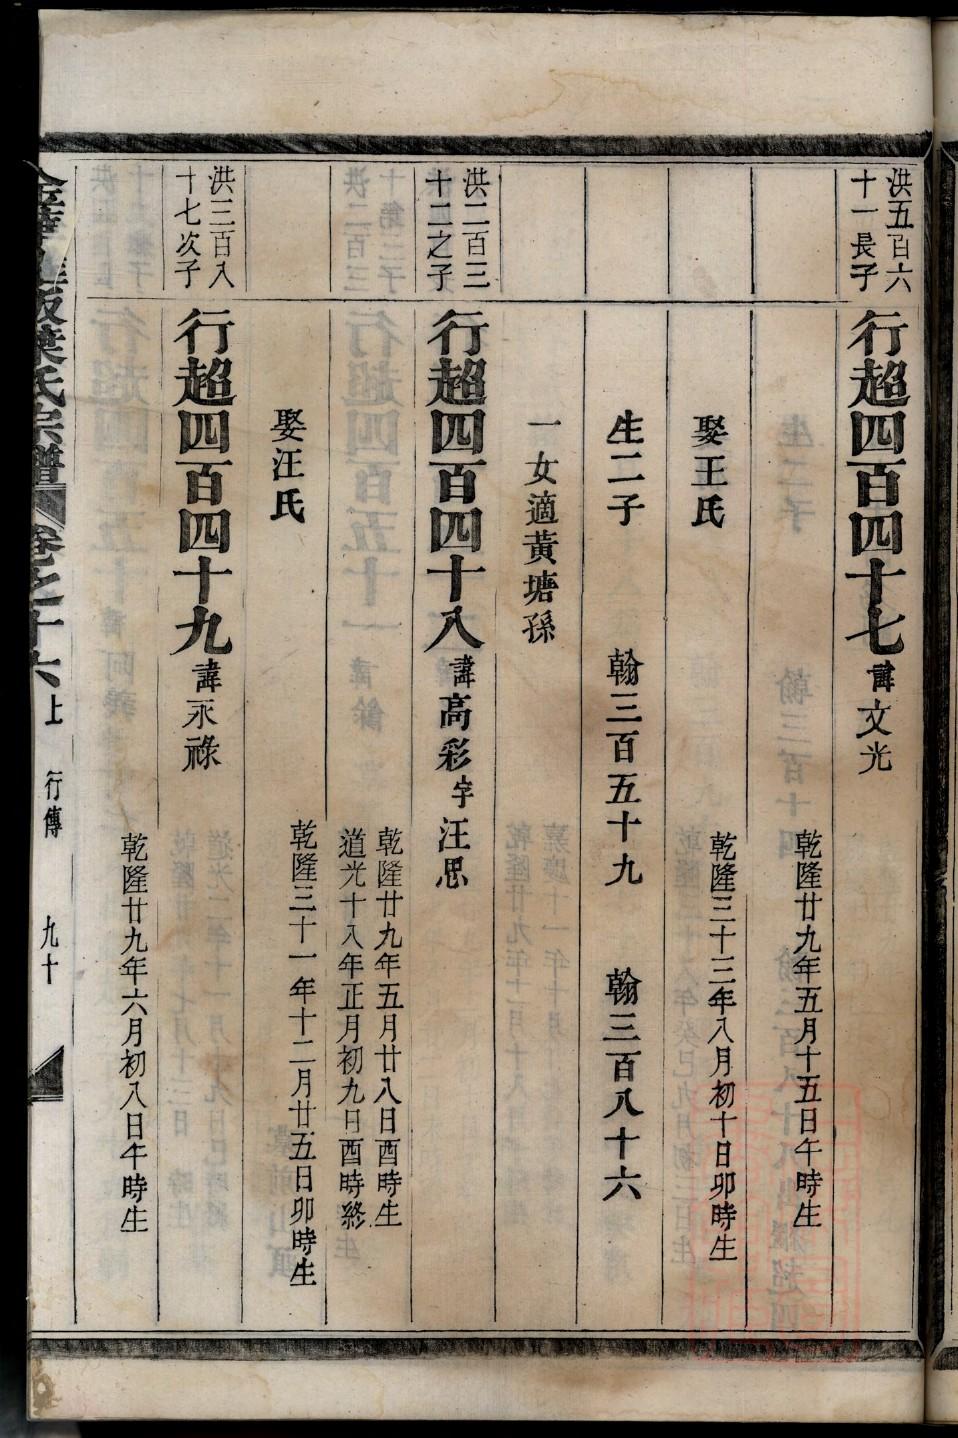 洪五百六
十一長子
行超四百四十七 諱文光
乾隆廿九年五月十五日午時生
娶王氏
乾隆三十三年八月初十日卯時生
生二子 翰三百五十九 翰三百八十六
一女適黃塘孫
洪二百三
十二之子
行超四百四十八 諱高彩 字汪思
乾隆廿九年五月廿八日酉時生
道光十八年正月初九日酉時終
娶汪氏
乾隆三十一年十二月廿五日卯時生
洪三百八
十七次子
行超四百四十九 諱永祿
乾隆廿九年六月初八日午時生
葉氏宗譜 卷之十六上 行傳 九十